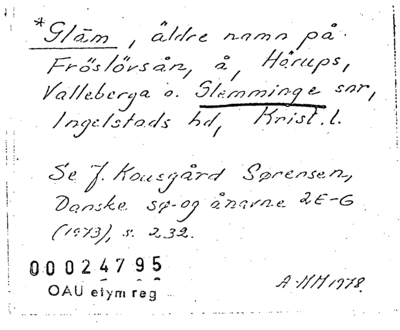 *Glām, äldre namn på
Fröslövsån, å, Hörups,
Valleberga o. Glemminge snr,
Ingelstads hd, Krist. l.
Se J. Kousgård Sørensen,
Danske sø- og ånavne 2 E-G
(1973), s. 232.
00024795
OAU etym reg
A-MH 1978.